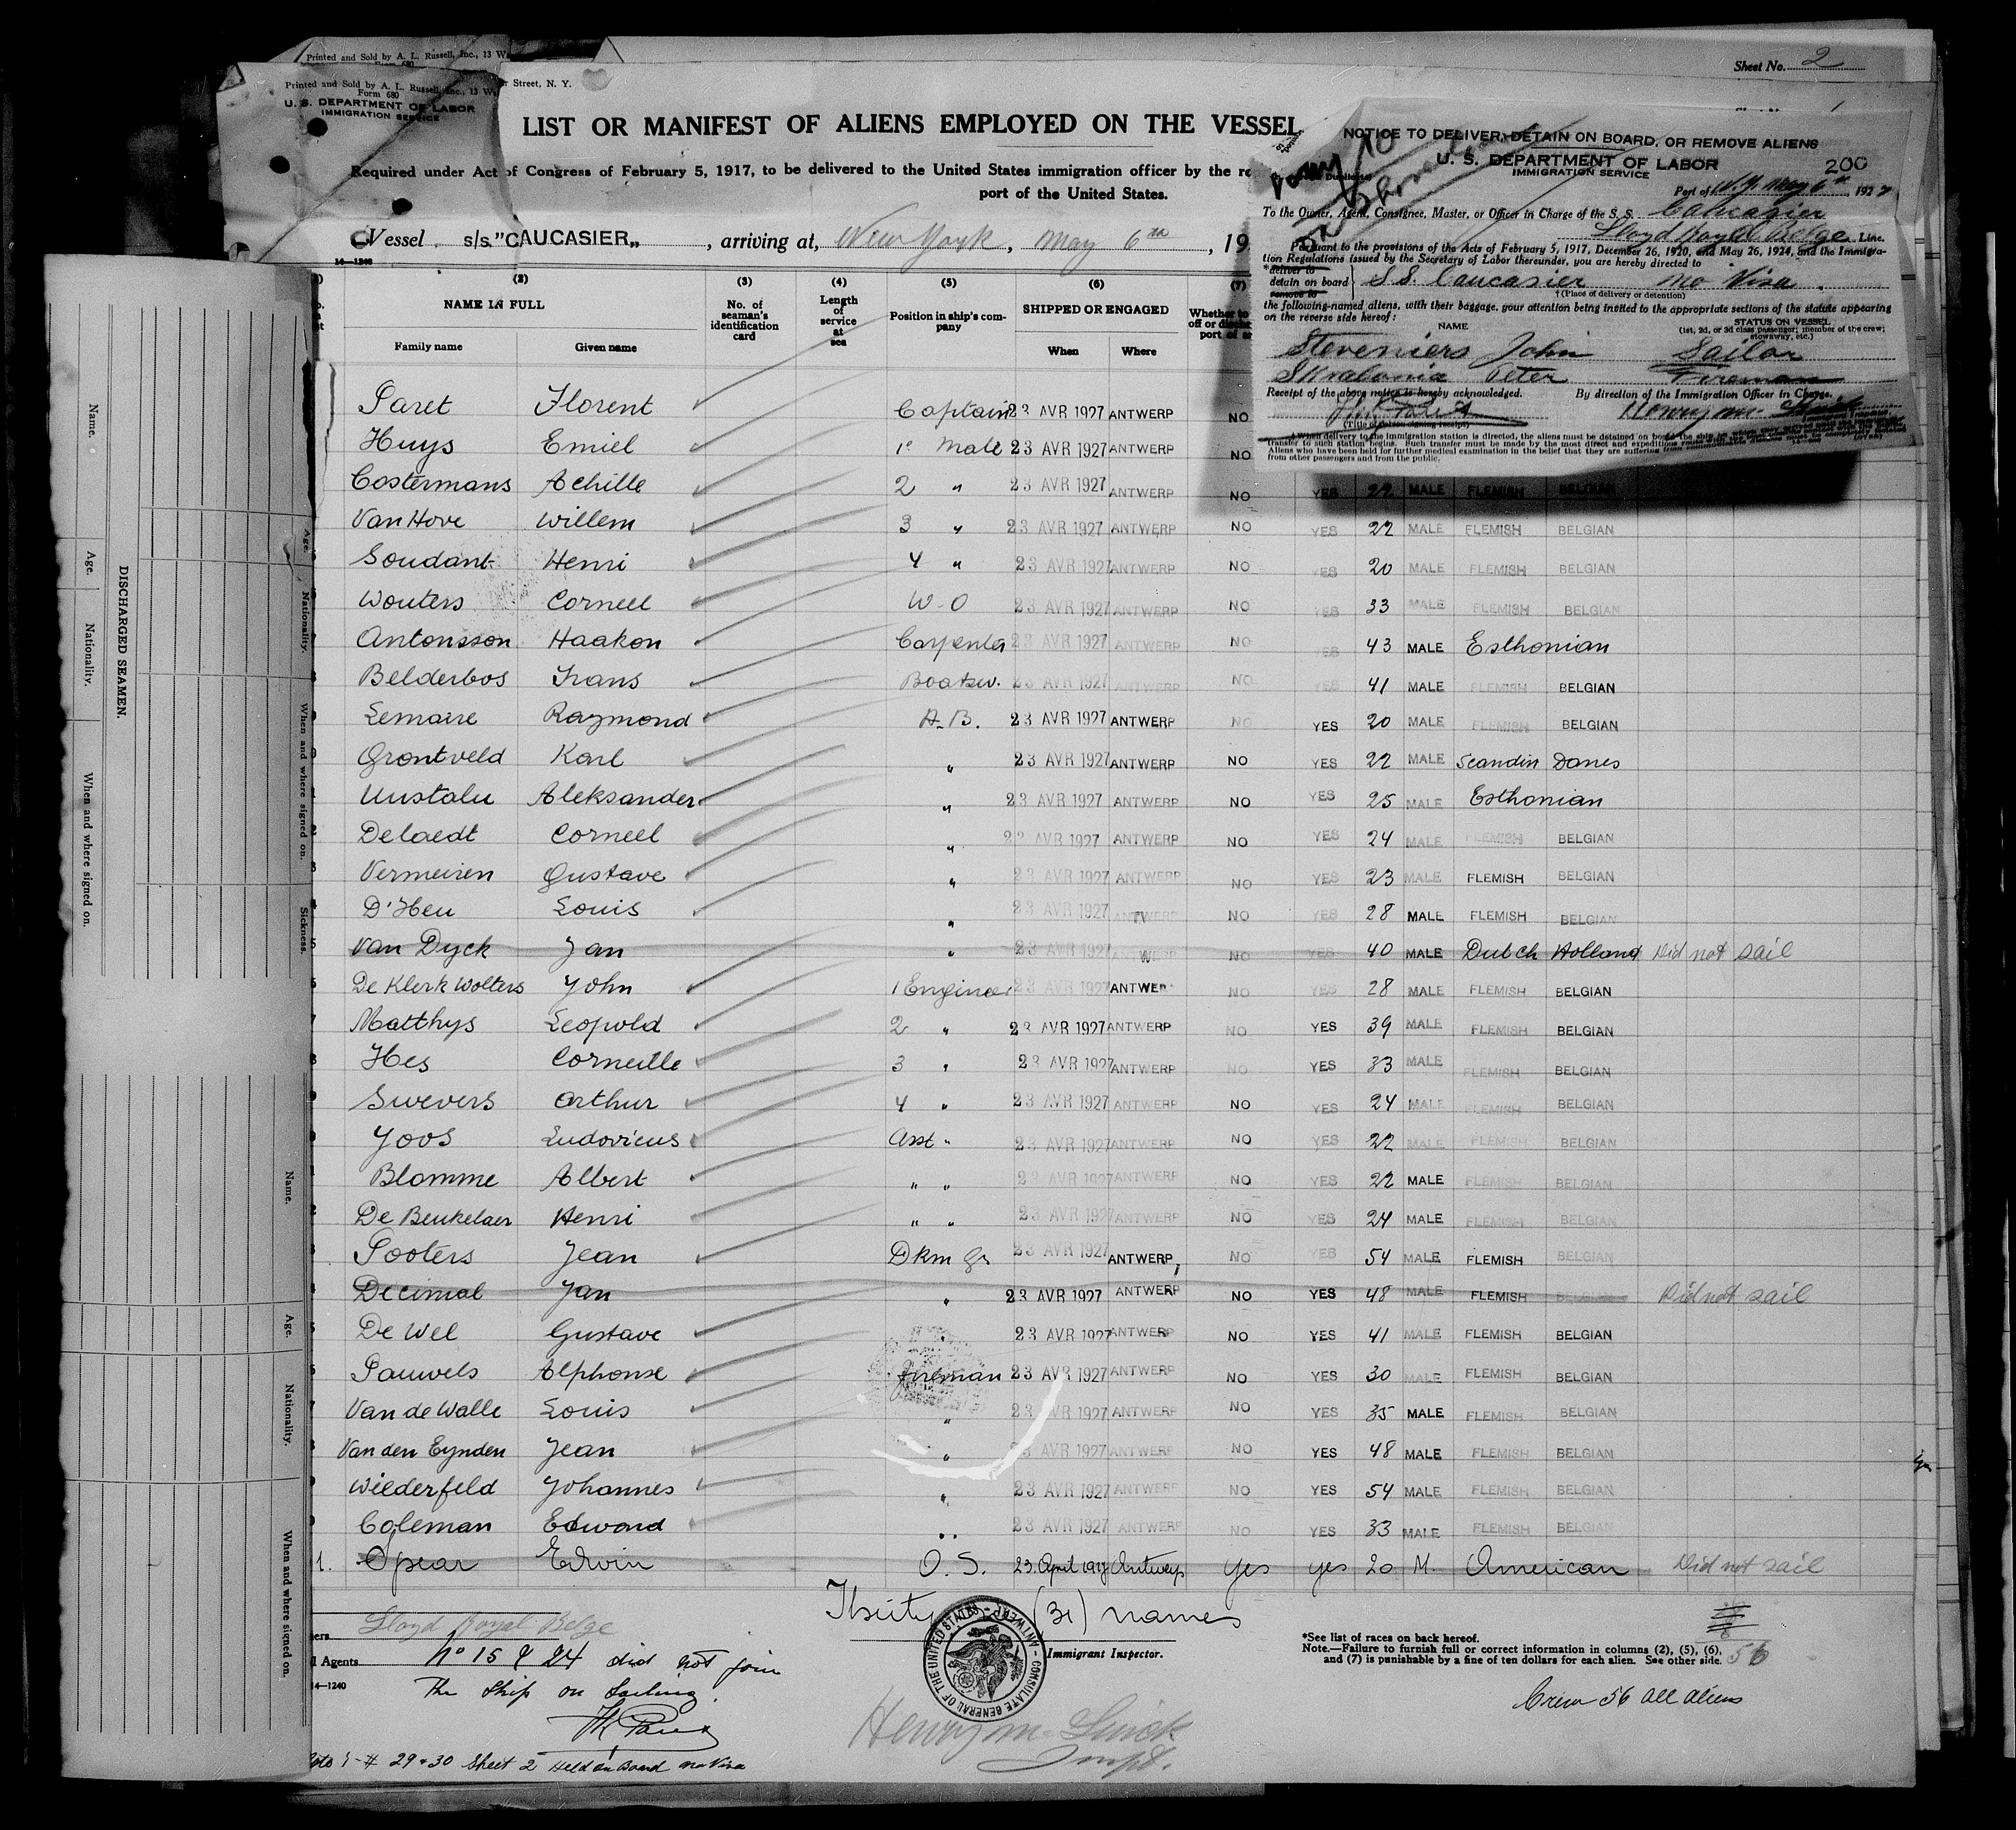 Printed and Sold by A. L. Russell, Inc., 13 W
Sheet No. 2
Printed and Sold by A. L. Russell, Inc., 13 W r Street, N. Y.
Form 680
U. S. DEPARTMENT OF LABOR
IMMIGRATION SERVICE
LIST OR MANIFEST OF ALIENS EMPLOYED ON THE VESSEL
Required under Act of Congress of February 5, 1917, to be delivered to the United States immigration officer by the re
port of the United States.
Vessel s/s "CAUCASIER", arriving at, New York, May 6th, 19
14—1240
NOTICE TO DELIVER, DETAIN ON BOARD, OR REMOVE ALIENS
U. S. DEPARTMENT OF LABOR 200
IMMIGRATION SERVICE
Port of N.Y. May 6th, 1927
To the Owner, Agent, Consignee, Master, or Officer in Charge of the S. S. Caucasier
Lloyd Royal Belge Line.
Pursuant to the provisions of the Acts of February 5, 1917, December 26, 1920, and May 26, 1924, and the Immigra-
tion Regulations issued by the Secretary of Labor thereunder, you are hereby directed to
*deliver to
detain on board S.S. Caucasier no Visa.
remove to
†(Place of delivery or detention)
the following-named aliens, with their baggage, your attention being invited to the appropriate sections of the statute appearing
on the reverse side hereof:
NAME STATUS ON VESSEL
(1st, 2d, or 3d class passenger; member of the crew;
stowaway, etc.)
Steveniers John Sailor
Skrabonia Peter Fireman
Receipt of the above notice is hereby acknowledged. By direction of the Immigration Officer in Charge.
(Title of person signing receipt)
† When delivery to the immigration station is directed, the aliens must be detained on board the ship
transfer to such station begins. Such transfer must be made by the most direct and expeditious
Aliens who have been held for further medical examination in the belief that they are suffering from
from other passengers and from the public.
(2) (3) (4) (5) (6) (7)
NAME IN FULL No. of seaman's identification card Length of service at sea Position in ship's company SHIPPED OR ENGAGED Whether to
Family name Given name When Where
Paret Florent Captain 23 AVR 1927 ANTWERP NO
Huys Emiel 1e Mate 23 AVR 1927 ANTWERP NO
Costermans Achille 2 " 23 AVR 1927 ANTWERP NO YES 22 MALE FLEMISH BELGIAN
Van Hove Willem 3 " 23 AVR 1927 ANTWERP NO YES 22 MALE FLEMISH BELGIAN
Soudant Henri 4 " 23 AVR 1927 ANTWERP NO YES 20 MALE FLEMISH BELGIAN
Wouters Corneel W-O 23 AVR 1927 ANTWERP NO YES 33 MALE FLEMISH BELGIAN
Antonsson Haakon Carpenter 23 AVR 1927 ANTWERP NO YES 43 MALE Esthonian
Belderbos Frans Boatsw. 23 AVR 1927 ANTWERP NO YES 41 MALE FLEMISH BELGIAN
Lemaire Raymond A-B. 23 AVR 1927 ANTWERP NO YES 20 MALE FLEMISH BELGIAN
Grontveld Karl " 23 AVR 1927 ANTWERP NO YES 22 MALE Scandin Danes
Uustalu Aleksander " 23 AVR 1927 ANTWERP NO YES 25 MALE Esthonian
Delaedt Corneel " 23 AVR 1927 ANTWERP NO YES 24 MALE FLEMISH BELGIAN
Vermeiren Gustave " 23 AVR 1927 ANTWERP NO YES 23 MALE FLEMISH BELGIAN
D'Heu Louis " 23 AVR 1927 ANTWERP NO YES 28 MALE FLEMISH BELGIAN
Van Dyck Jan " 23 AVR 1927 ANTWERP NO YES 40 MALE Dutch Holland Did not sail
De Klerk Wolters John 1 Engineer 23 AVR 1927 ANTWERP NO YES 28 MALE FLEMISH BELGIAN
Matthys Leopold 2 " 23 AVR 1927 ANTWERP NO YES 39 MALE FLEMISH BELGIAN
Hes Corneille 3 " 23 AVR 1927 ANTWERP NO YES 33 MALE FLEMISH BELGIAN
Swevers Arthur 4 " 23 AVR 1927 ANTWERP NO YES 24 MALE FLEMISH BELGIAN
Joos Ludovicus Asst " 23 AVR 1927 ANTWERP NO YES 22 MALE FLEMISH BELGIAN
Blomme Albert " " 23 AVR 1927 ANTWERP NO YES 22 MALE FLEMISH BELGIAN
De Beukelaer Henri " " 23 AVR 1927 ANTWERP NO YES 24 MALE FLEMISH BELGIAN
Pooters Jean Dkm Gr 23 AVR 1927 ANTWERP NO YES 54 MALE FLEMISH BELGIAN
Decimal Jan " 23 AVR 1927 ANTWERP NO YES 48 MALE FLEMISH BELGIAN Did not sail
De Wel Gustave " 23 AVR 1927 ANTWERP NO YES 41 MALE FLEMISH BELGIAN
Pauwels Alphonse Fireman 23 AVR 1927 ANTWERP NO YES 30 MALE FLEMISH BELGIAN
Van de Walle Louis " 23 AVR 1927 ANTWERP NO YES 35 MALE FLEMISH BELGIAN
Van den Eynden Jean " 23 AVR 1927 ANTWERP NO YES 48 MALE FLEMISH BELGIAN
Wiederfeld Johannes " 23 AVR 1927 ANTWERP NO YES 54 MALE FLEMISH BELGIAN
Coleman Edward " 23 AVR 1927 ANTWERP NO YES 33 MALE FLEMISH BELGIAN
1. Spear Edwin O.S. 23 April 1927 Antwerp Yes yes 20 M. American Did not sail
Thirty (31) names
Lloyd Royal Belge
Agents No 15 & 24 did not join
14—1240 The Ship on Sailing.
Immigrant Inspector.
CONSULATE GENERAL OF THE UNITED STATES - ANTWERP
*See list of races on back hereof.
Note.—Failure to furnish full or correct information in columns (2), (5), (6),
and (7) is punishable by a fine of ten dollars for each alien. See other side. 56
Crew 56 all aliens
Henry M.
Inspt.
# 29 & 30 Sheet 2 Held on Board no Visa
DISCHARGED SEAMEN.
Name. Age. Nationality. When and where signed on.
Age. Nationality. When and where signed on. Sickness.
Name. Age. Nationality. When and where signed on.